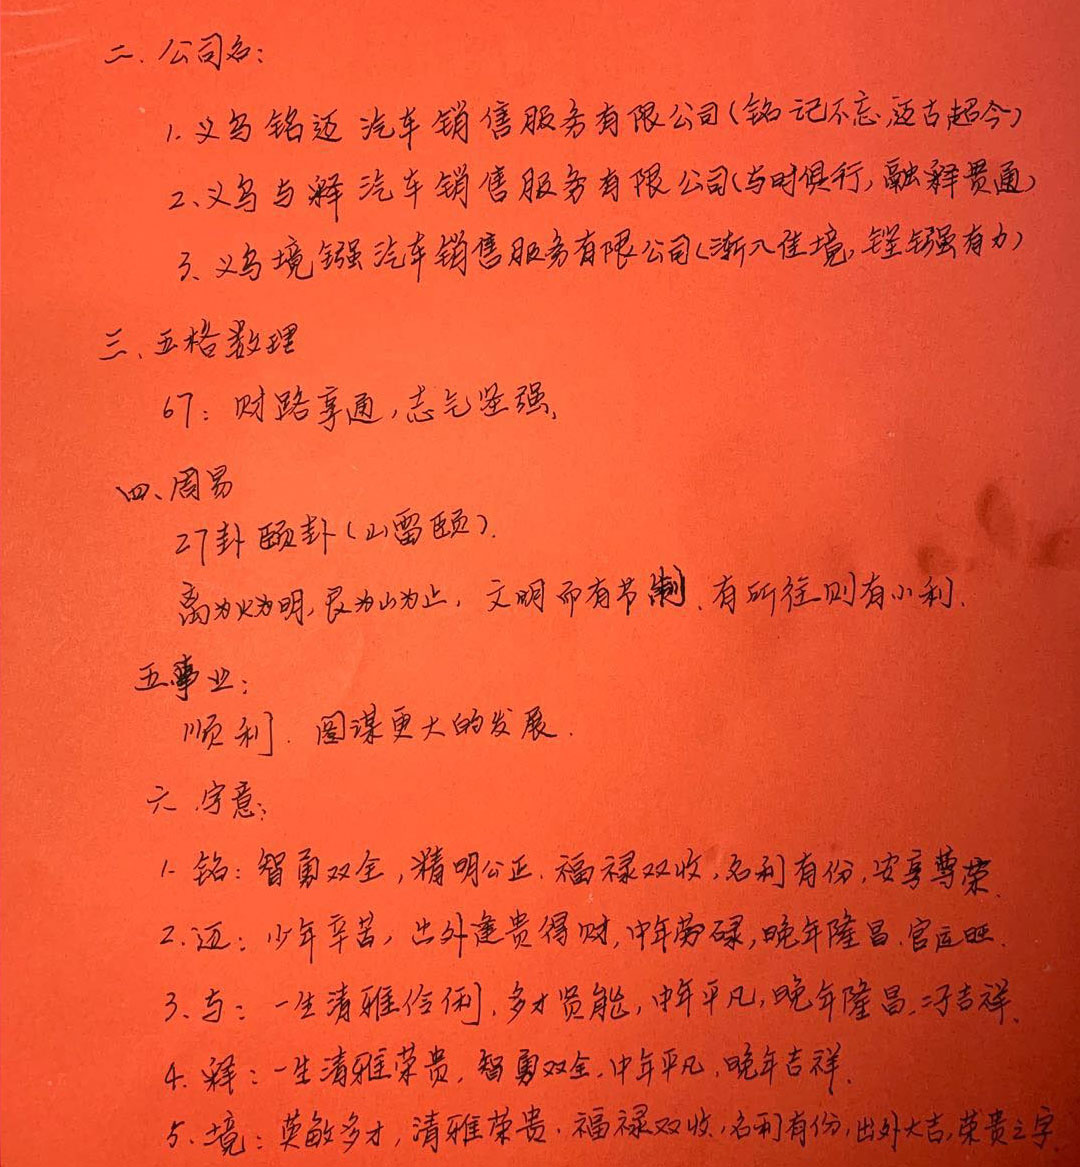 二、公司名：
1、义乌铭迈汽车销售服务有限公司（铭记不忘，迈古超今）
2、义乌与释汽车销售服务有限公司（与时俱行，融释贯通）
3、义乌境镪汽车销售服务有限公司（渐入佳境，铿镪有力）
三、五格数理
67：财路享通，志气坚强、
四、周易
27卦颐卦（山雷颐）.
离为火为明，艮为山为止，文明而有节制、有所往则有小利.
五、事业：
顺利. 图谋更大的发展.
六、字意：
1、铭：智勇双全，精明公正. 福禄双收，名利有份，安享尊荣.
2、迈：少年辛苦，出外逢贵得财，中年劳碌，晚年隆昌. 官运旺.
3、与：一生清雅伶俐，多才贤能，中年平凡，晚年隆昌. 二子吉祥、
4、释：一生清雅荣贵. 智勇双全. 中年平凡，晚年吉祥.
5、境：英敏多才，清雅荣贵. 福禄双收，名利有份，出外大吉，荣贵之字.